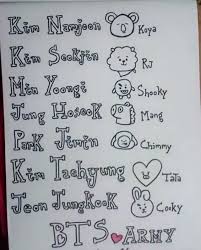 Kim Namjoon Koya
Kim Seokjin RJ
Min Yoongi Shooky
Jung Hoseok Mang
Park Jimin Chimmy
Kim Taehyung TaTa
Jeon Jungkook Cooky
BTS ARMY